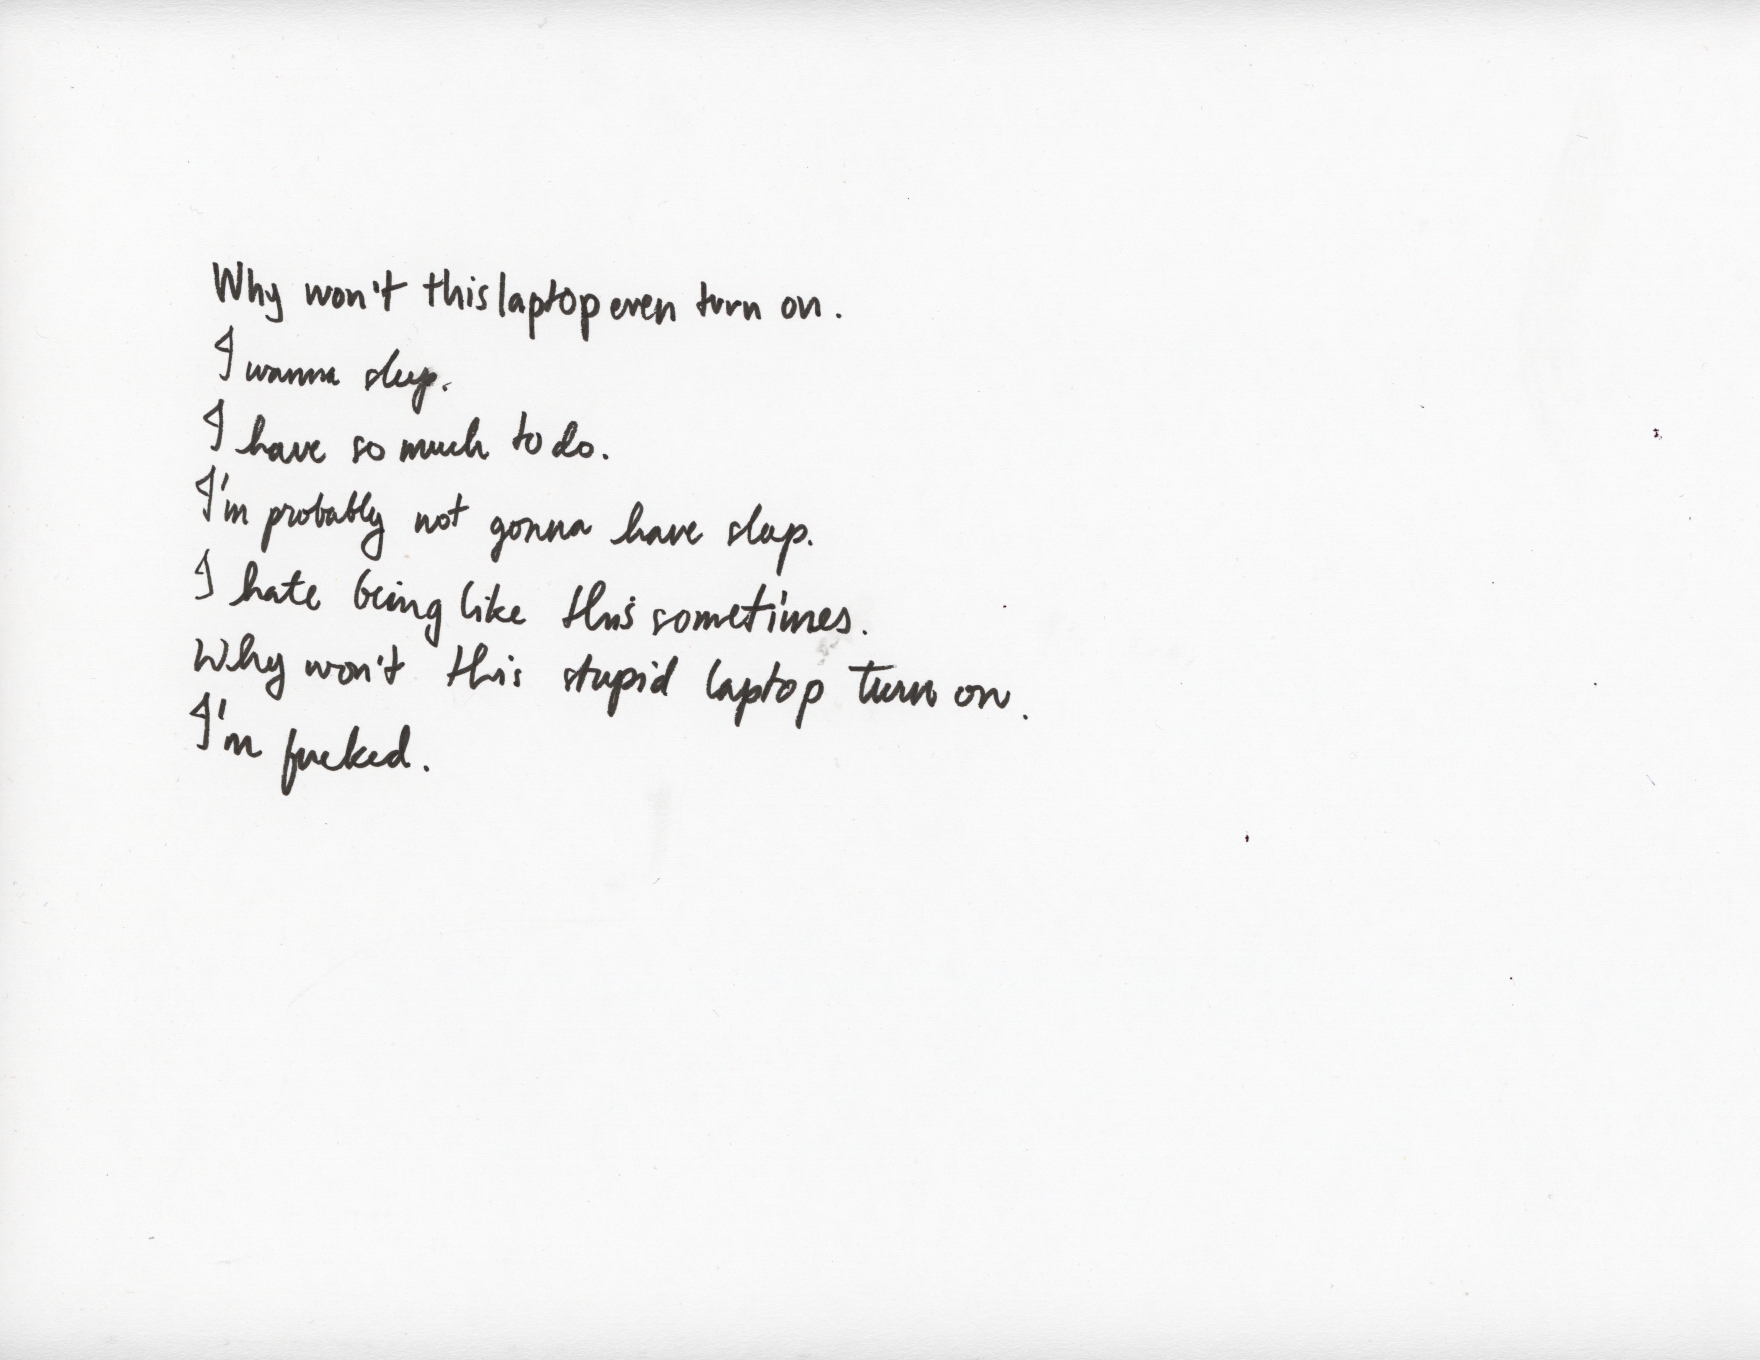 Why won't this laptop even turn on.
I wanna sleep.
I have so much to do.
I'm probably not gonna have sleep.
I hate being like this sometimes.
Why won't this stupid laptop turn on.
I'm fucked.